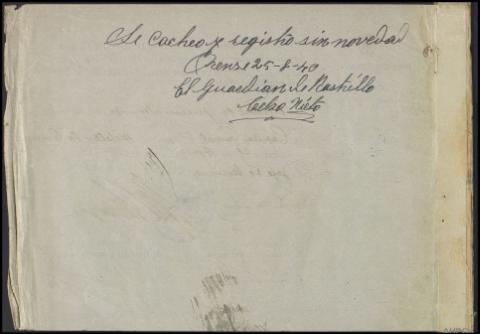 Se cacheo y registró sin novedad
Orense 25-8-40
El Guardian de Rastrillo
Nieto